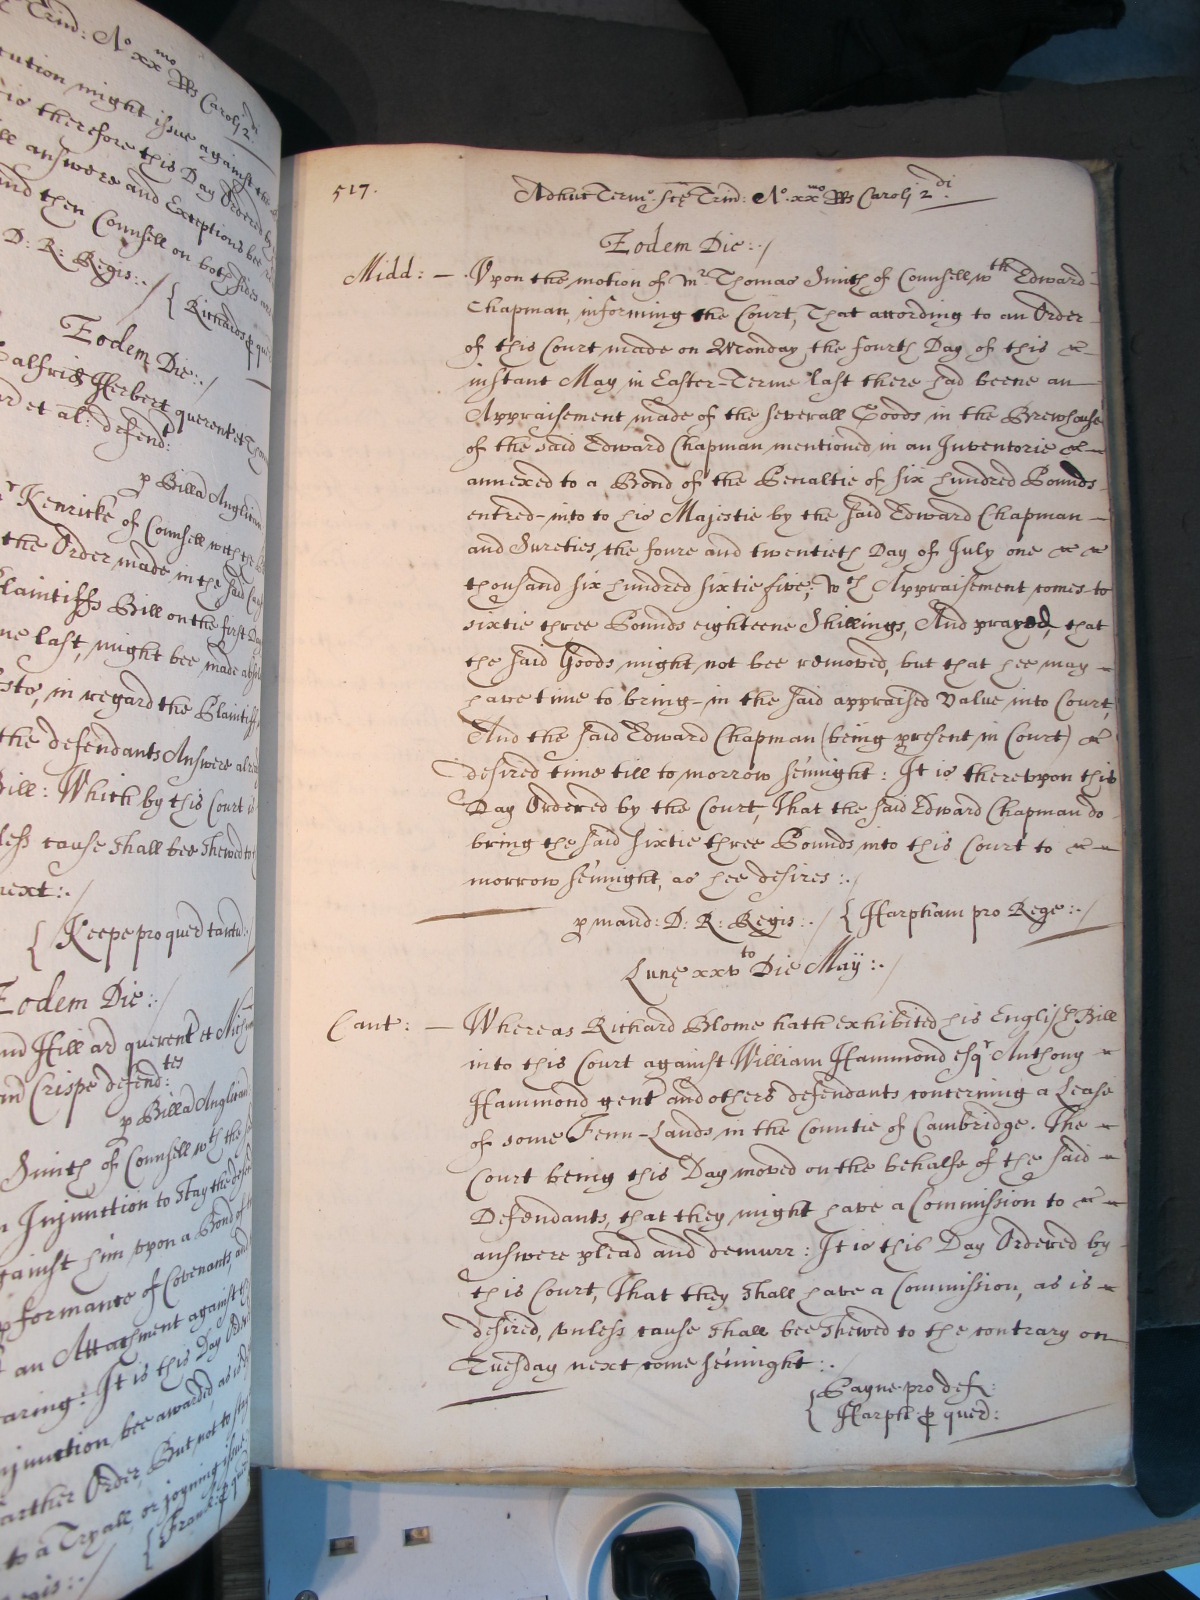 Trin: No xxmo Rs Carolj 2di
cution might issue against the
is therefore this Day Ordered by
ll answere and Exceptions bee
and then Counsell on both sides
D: R: Regis:./
{ Richards p quer
Eodem Die:./
Herbert querent et
rd et al: defend:
p Billa Anglican
r Kenricke of Counsell with the
the Order made in the said Cause
laintiffs Bill on the first Day
me last, might bee made absol
sto, in regard the Plaintiff
the defendants Answere alrea
Bill: Which by this Court is
less cause shall bee shewed to
next:./
{ Keepe pro quer tantu:
Eodem Die:/
nd Hillard querent et
and Crispe defend:tes
p Billa Anglican
Smith of Counsell wth the
n Injunction to stay the
gainst him vpon a Bond of
pformance of Covenants, and
an Attachment against
earing: It is this Day
njunction bee awarded, as is
arther Order, But not to stay
to a Tryall, or joyning issue
{ Frank: p quer
egis:./
517.
Adhuc Termo: Sce Trin: No. xxmo Rs Carolj 2di.
Eodem Die:./
Midd: — Vpon the motion of mr: Thomas Smith of Counsell wth Edward
Chapman, informing the Court, That according to an Order
of this Court made on Monday the fourth Day of this
instant May in Easter-Terme last there had beene an
Appraisement made of the severall Goods in the Brewhouse
of the said Edward Chapman mentioned in an Inventorie
annexed to a Bond of the Penaltie of six hundred Pounds
entred-into to his Majestie by the said Edward Chapman
and Sureties, the foure and twentieth Day of July one
thousand six hundred sixtie five; wch Appraisement comes to
sixtie three Pounds eighteene Shillings, And prayed, that
the said Goods might not bee removed, but that hee may
have time to bring-in the said appraised Value into Court,
And the said Edward Chapman (being present in Court)
desired time till to morrow senight: It is therevpon this
Day Ordered by the Court, That the said Edward Chapman do
bring the said sixtie three Pounds into this Court to
morrow senight, as hee desires:./
p mand: D: R: Regis:./ { Harpham pro Rege:./
Lune xxvto Die May:./
Cant: — Whereas Richard Blome hath exhibited his English Bill
into this Court against William Hammond esqr Anthony
Hammond gent and others defendants concerning a Lease
of some Fenn-Lands in the Countie of Cambridge. The
Court being this Day moved on the behalfe of the said
Defendants, that they might have a Commission to
answere plead and demurr: It is this Day Ordered by
this Court, That they shall have a Commission, as is
desired, vnless cause shall bee shewed to the contrary on
Tuesday next come senight:./
{ Sayne pro def:
{ Harph: p quer: